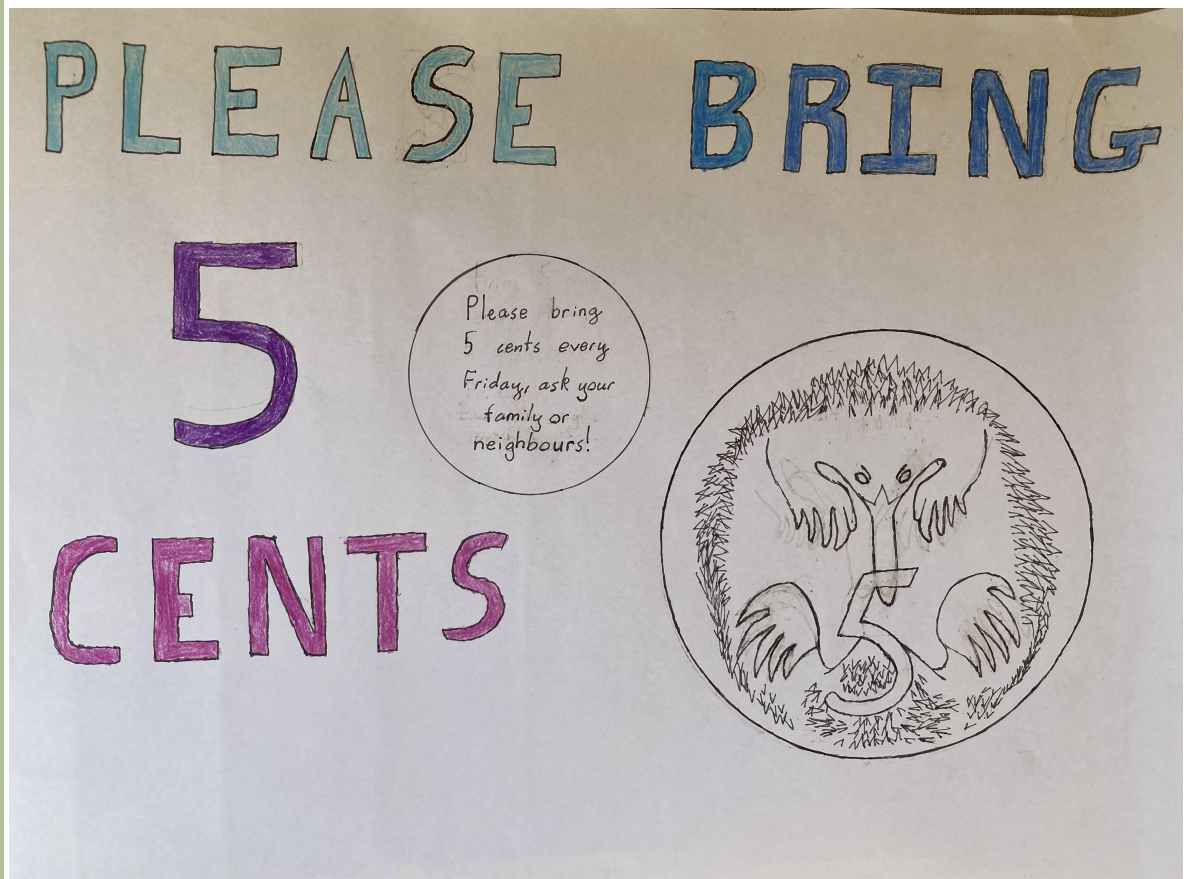 PLEASE BRING
5
Please bring
5 cents every
Friday, ask your
family or
neighbours!
CENTS
5